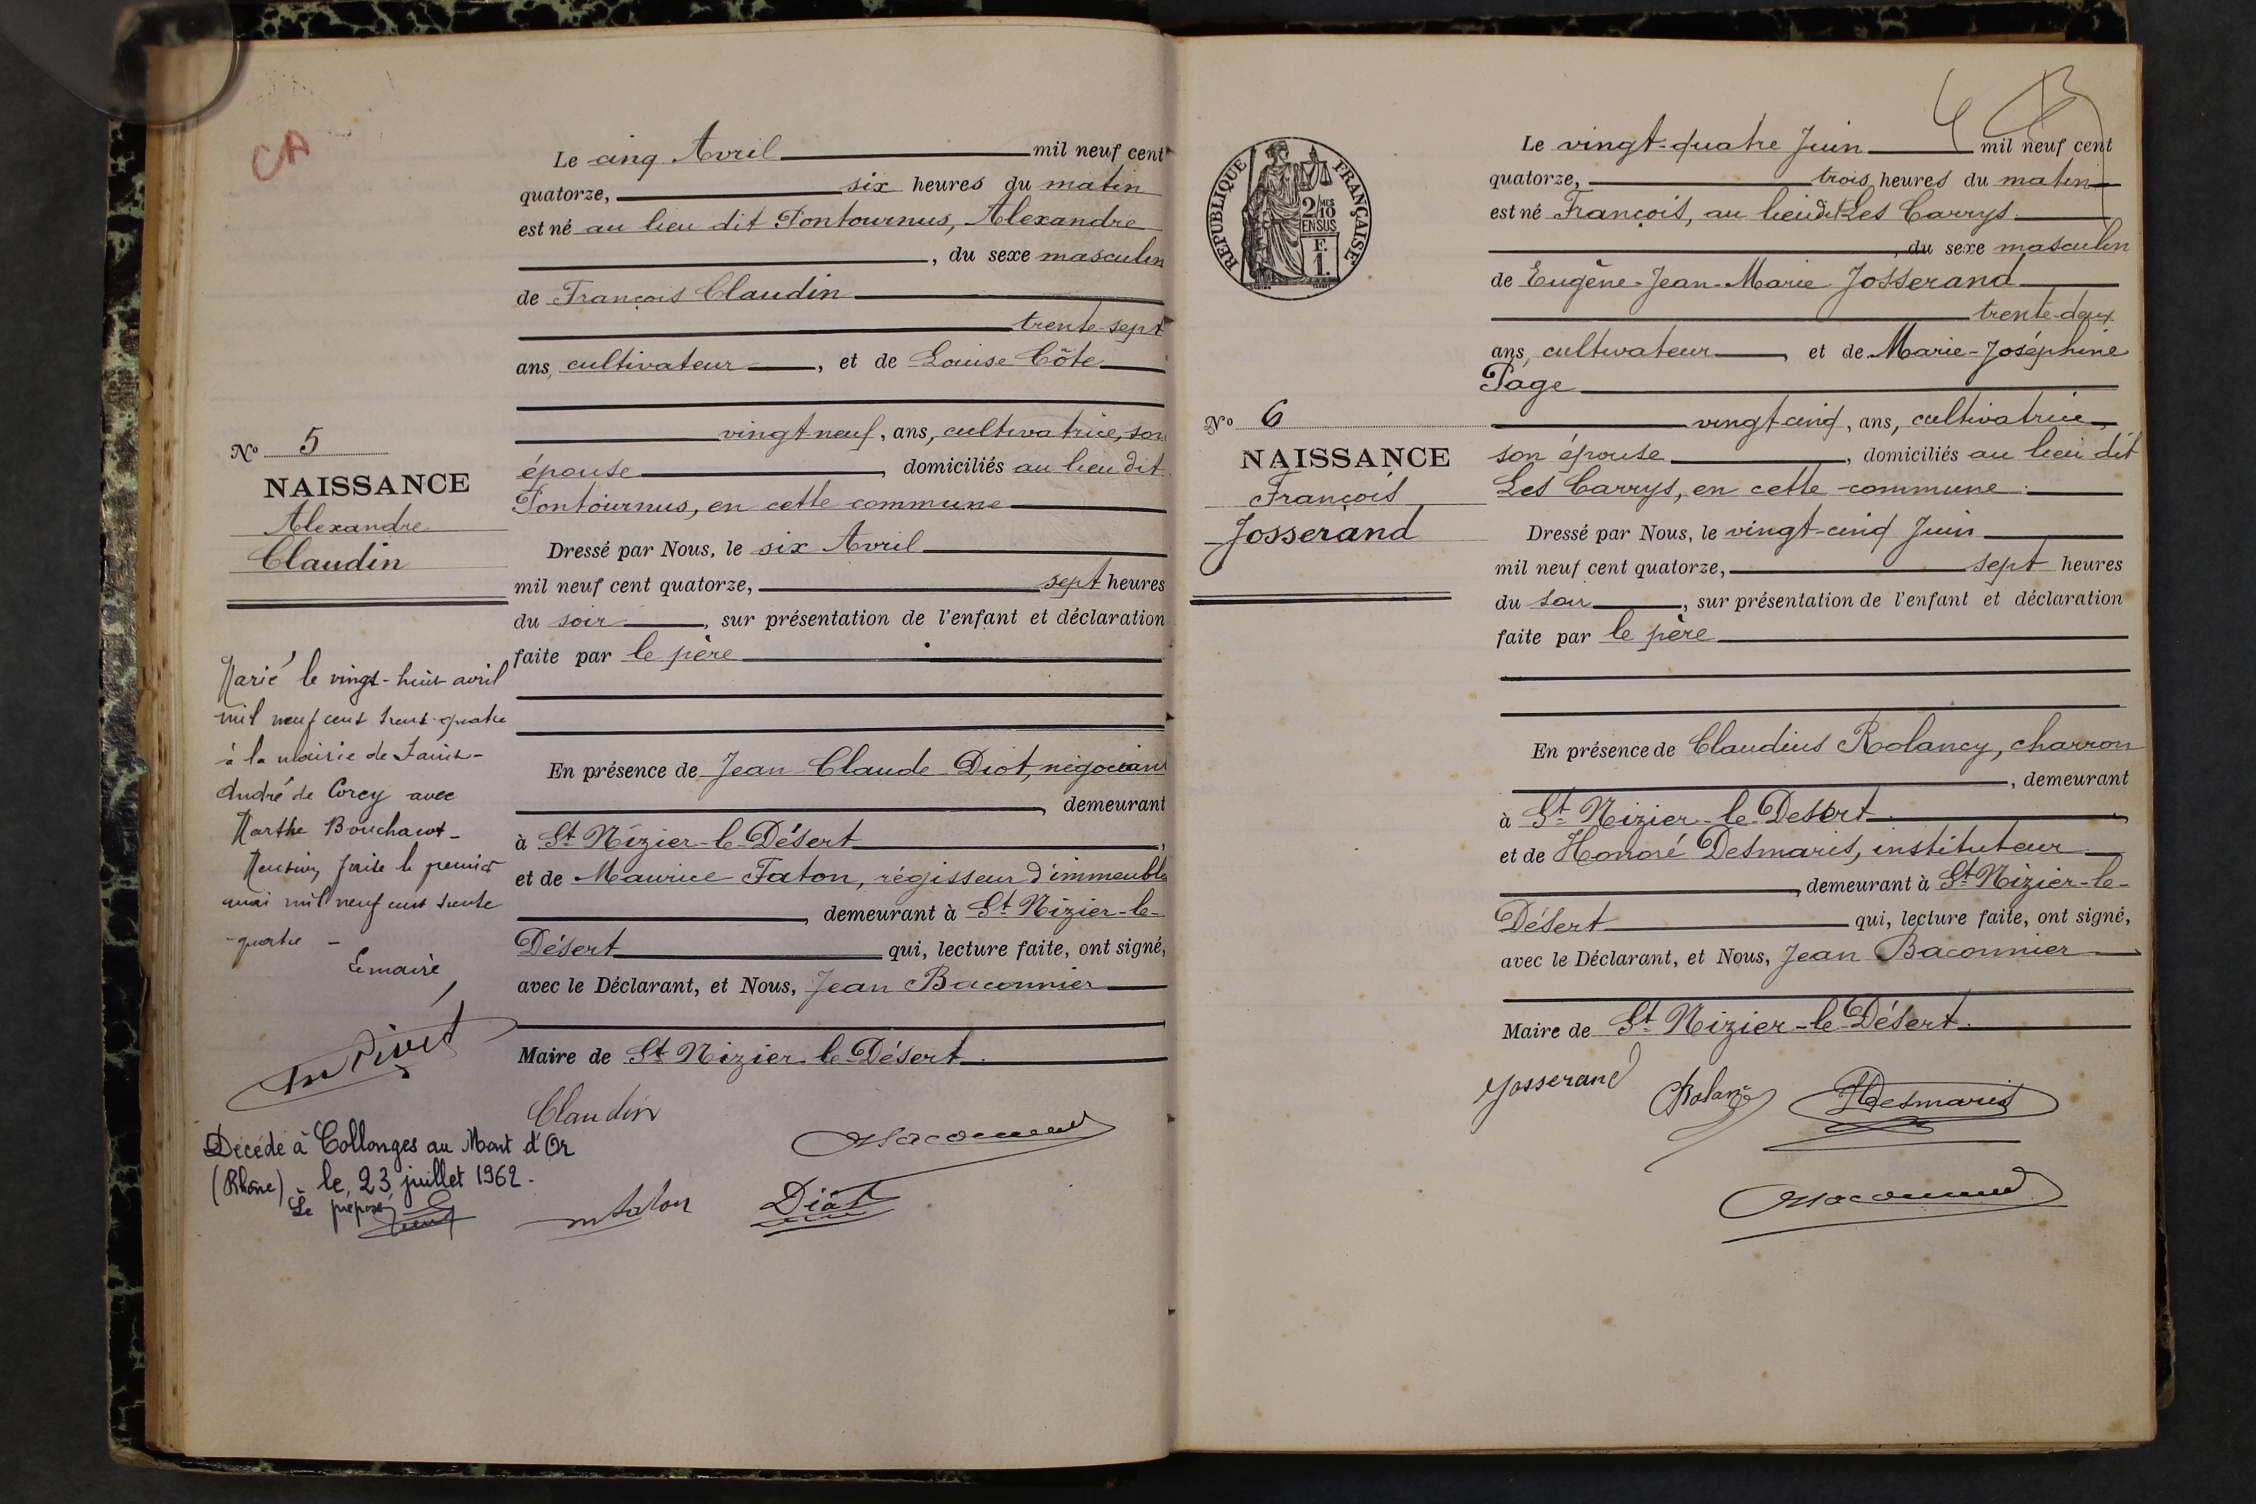 CA
Le cinq Avril mil neuf cent
quatorze, six heures du matin
est né au lieu dit Pontournus, Alexandre
, du sexe masculin
de François Claudin
trente-sept
ans, cultivateur, et de Louise Côte
vingt-neuf, ans, cultivatrice, son
épouse, domiciliés au lieu dit
Pontournus, en cette commune
Dressé par Nous, le six Avril
mil neuf cent quatorze, sept heures
du soir, sur présentation de l'enfant et déclaration
faite par le père
En présence de Jean Claude Diot, négociant
, demeurant
à St Nizier-le-Désert,
et de Maurice Faton, régisseur d'immeuble
, demeurant à St Nizier-le-
Désert qui, lecture faite, ont signé,
avec le Déclarant, et Nous, Jean Baconnier
Maire de St Nizier-le-Désert.
Claudin
Diot
No 5
NAISSANCE
Alexandre
Claudin
Marié le vingt-huit avril
mil neuf cent trente-quatre
à la mairie de Saint-
André de Corcy avec
Marthe Bouchacot-
Mention faite le premier
mai mil neuf cent trente
-quatre -
Le maire,
Décédé à Collonges au Mont d'Or
(Rhône), le 23 juillet 1962.
Le préposé
RÉPUBLIQUE FRANÇAISE
2/10 MES
EN SUS
F.
1.
No 6
NAISSANCE
François
Josserand
Le vingt-quatre Juin mil neuf cent
quatorze, trois heures du matin
est né François, au lieu dit Les Carrys
, du sexe masculin
de Eugène-Jean-Marie Josserand
trente-deux
ans, cultivateur, et de Marie-Joséphine
Page
vingt-cinq, ans, cultivatrice,
son épouse, domiciliés au lieu dit
Les Carrys, en cette commune.
Dressé par Nous, le vingt-cinq Juin
mil neuf cent quatorze, sept heures
du soir, sur présentation de l'enfant et déclaration
faite par le père
En présence de Claudius Rolancy, charron
, demeurant
à St Nizier-le-Désert,
et de Honoré Desmaris, instituteur
, demeurant à St Nizier-le-
Désert qui, lecture faite, ont signé,
avec le Déclarant, et Nous, Jean Baconnier
Maire de St Nizier-le-Désert.
Josserand
HDesmaris